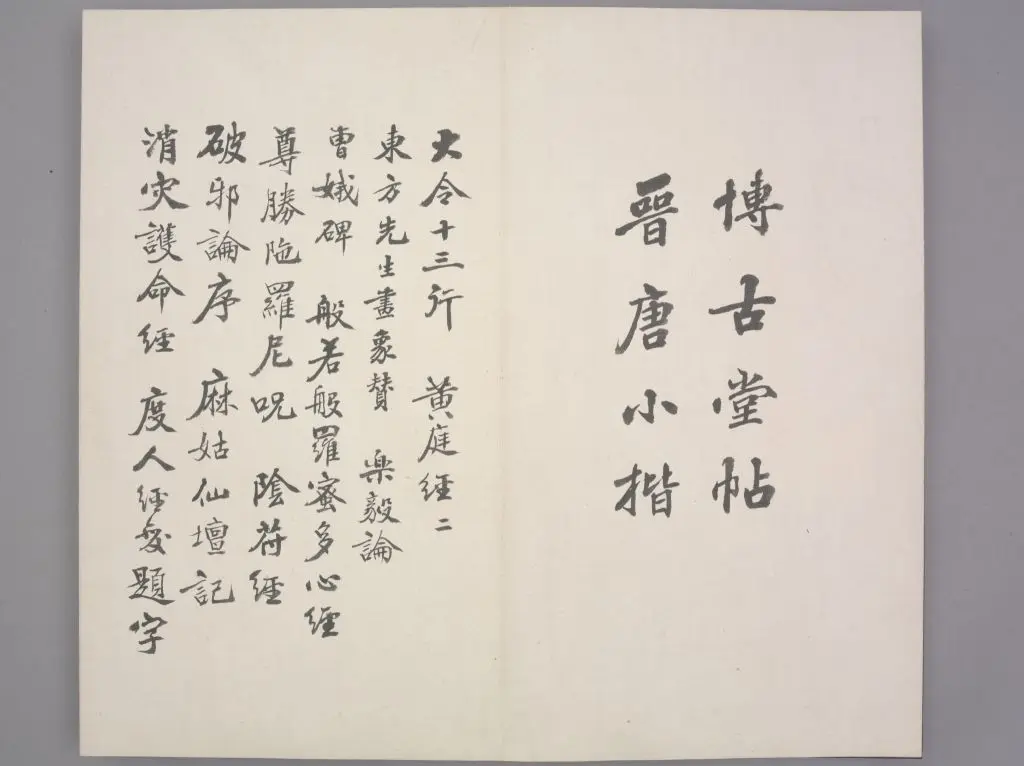 博古堂帖
晉唐小楷
大令十三行 黃庭經二
東方先生畫象贊 樂毅論
曹娥碑 般若般羅蜜多心經
尊勝陁羅尼呪 陰苻經
破邪論序 麻姑仙壇記
消灾護命經 度人經变題字